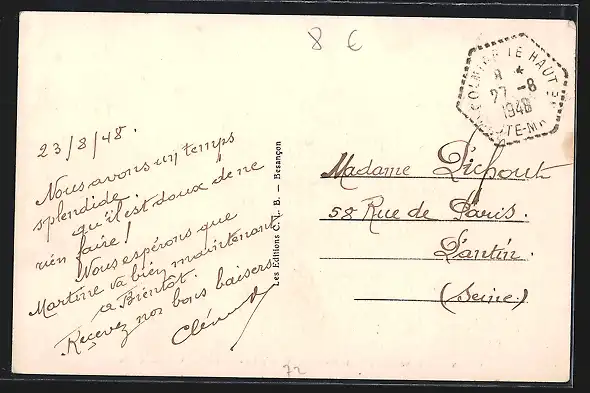 8 €
COLMIER LE HAUT
8 *
27 - 8
1948
HTE-MARNE
23/8/48.
Nous avons un temps
splendide.
qu'il est doux de ne
rien faire !
Nous espérons que
Martine va bien maintenant
a Bientôt.
Recevez nos bons baisers
Les Editions C. L. B. — Besançon
Madame
58 Rue de Paris.
Pantin.
(Seine)
72